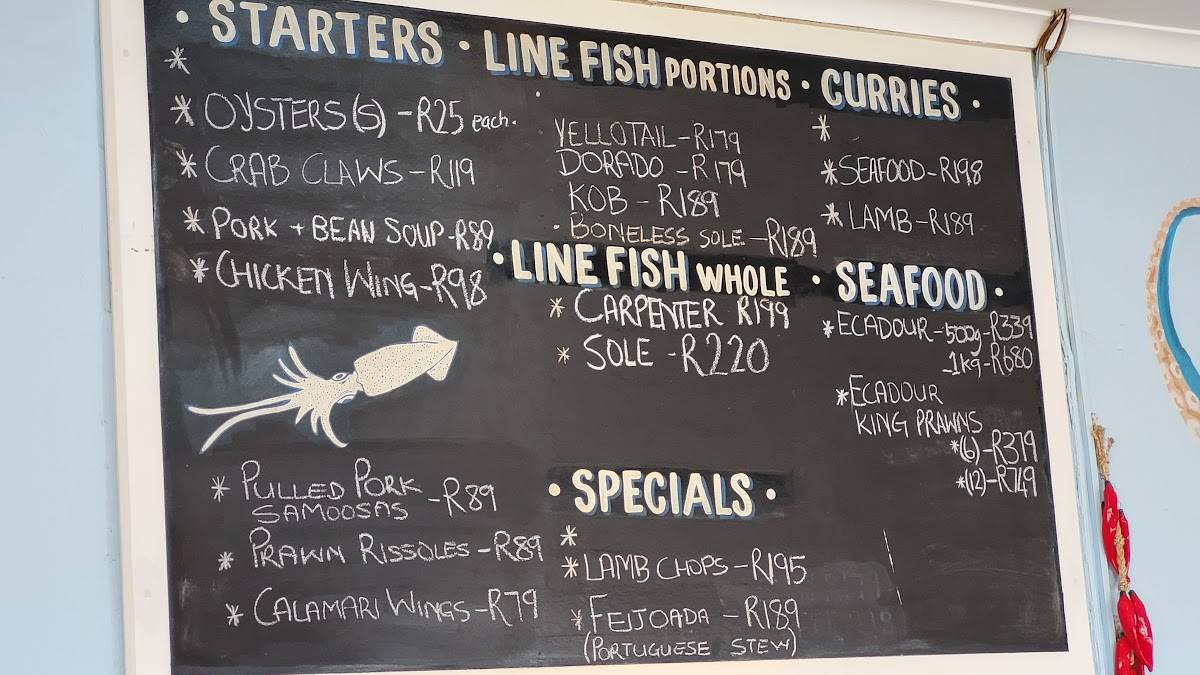 · STARTERS ·
*
* OYSTERS (S) - R25 each.
* CRAB CLAWS - R119
* PORK + BEAN SOUP - R89
* CHICKEN WING - R98
* PULLED PORK SAMOOSAS - R89
* PRAWN RISSOLES - R89
* CALAMARI WINGS - R79
LINE FISH PORTIONS ·
YELLOTAIL - R179
DORADO - R179
KOB - R189
· BONELESS SOLE - R189
· LINE FISH WHOLE ·
* CARPENTER R199
* SOLE - R220
· SPECIALS ·
*
* LAMB CHOPS - R195
* FEIJOADA - R189
(PORTUGUESE STEW)
CURRIES ·
*
* SEAFOOD - R198
* LAMB - R189
SEAFOOD ·
* ECADOUR - 500g - R339
- 1kg - R680
* ECADOUR
KING PRAWNS
* (6) - R379
* (12) - R749